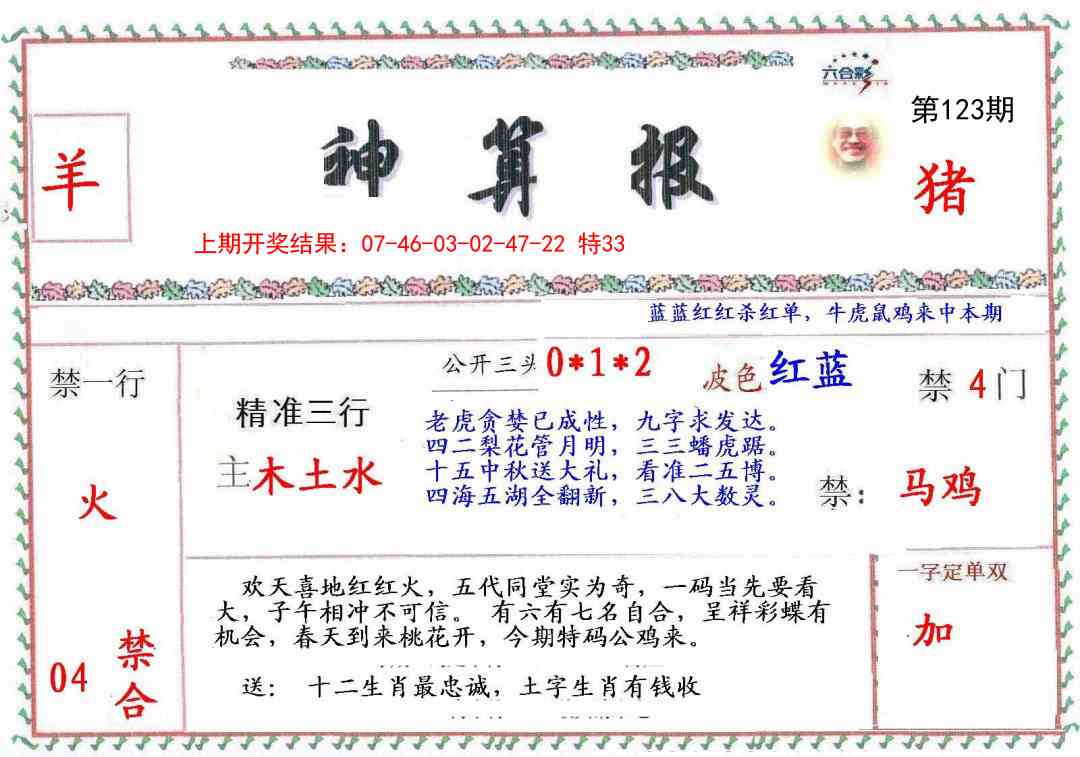 六合彩
第123期
羊
神算报
猪
上期开奖结果：07-46-03-02-47-22 特33
蓝蓝红红杀红单，牛虎鼠鸡来中本期
禁一行
公开三头
0*1*2
波色
红蓝
禁4门
精准三行
老虎贪婪已成性，九字求发达。
四二梨花管月明，三三蟠虎踞。
十五中秋送大礼，看准二五博。
四海五湖全翻新，三八大数灵。
主木土水
火
禁：
马鸡
欢天喜地红红火，五代同堂实为奇，一码当先要看
大，子午相冲不可信。 有六有七名自合，呈祥彩蝶有
机会，春天到来桃花开，今期特码公鸡来。
送： 十二生肖最忠诚，土字生肖有钱收
一字定单双
加
04
禁合